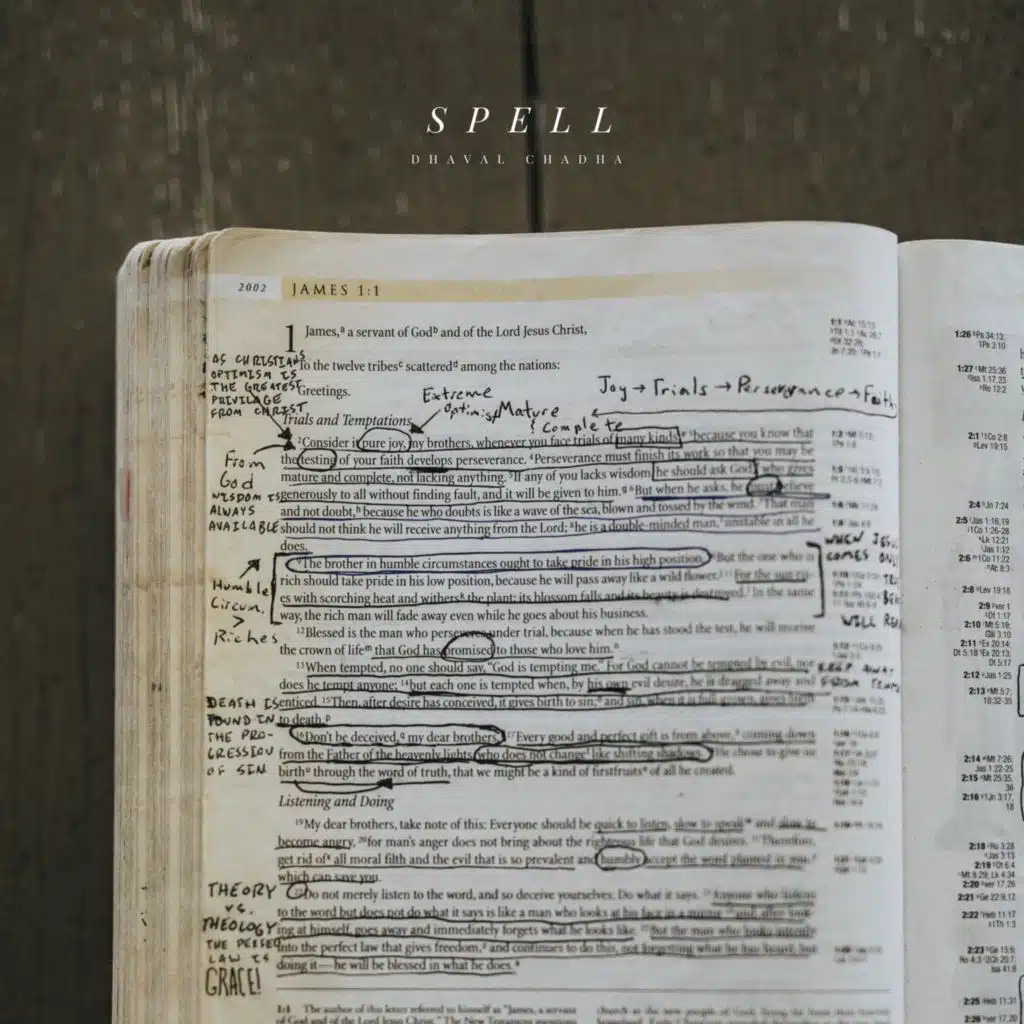 SPELL
DHAVAL CHADHA
2002 JAMES 1:1
1 James,ᵃ a servant of Godᵇ and of the Lord Jesus Christ,
To the twelve tribesᶜ scatteredᵈ among the nations:
Greetings.
AS CHRISTIANS
OPTIMISM IS
THE GREATEST
PRIVILAGE
FROM CHRIST
Extreme
optimism
Mature
& Complete
Joy → Trials → Perserverance → Faith
Trials and Temptations
²Consider it pure joy, my brothers, whenever you face trials of many kinds, because you know that
the testing of your faith develops perseverance. ⁴Perseverance must finish its work so that you may be
mature and complete, not lacking anything. ⁵If any of you lacks wisdom, he should ask God, who gives
generously to all without finding fault, and it will be given to him. ⁶But when he asks, he must believe
and not doubt, because he who doubts is like a wave of the sea, blown and tossed by the wind. That man
should not think he will receive anything from the Lord; ⁸he is a double-minded man, unstable in all he
does.
From
God
WISDOM IS
ALWAYS
AVAILABLE
⁹The brother in humble circumstances ought to take pride in his high position. But the one who is
rich should take pride in his low position, because he will pass away like a wild flower. For the sun ris-
es with scorching heat and withers the plant; its blossom falls and its beauty is destroyed. In the same
way, the rich man will fade away even while he goes about his business.
Humble
Circum.
>
Riches
WHEN JESUS
COMES ONLY
WILL
¹²Blessed is the man who perseveres under trial, because when he has stood the test, he will receive
the crown of lifeᵐ that God has promised to those who love him.ⁿ
¹³When tempted, no one should say, "God is tempting me." For God cannot be tempted by evil, nor
does he tempt anyone; ¹⁴but each one is tempted when, by his own evil desire, he is dragged away and
enticed. ¹⁵Then, after desire has conceived, it gives birth to sin; and sin, when it is full-grown, gives birth
to death.
KEEP AWAY
FROM
DEATH IS
FOUND IN
THE PRO-
GRESSION
OF SIN
¹⁶Don't be deceived, my dear brothers. ¹⁷Every good and perfect gift is from above, coming down
from the Father of the heavenly lights, who does not change like shifting shadows. He chose to give us
birth through the word of truth, that we might be a kind of firstfruits of all he created.
Listening and Doing
¹⁹My dear brothers, take note of this: Everyone should be quick to listen, slow to speak and slow to
become angry, ²⁰for man's anger does not bring about the righteous life that God desires. Therefore,
get rid of all moral filth and the evil that is so prevalent and humbly accept the word planted in you,
which can save you.
Do not merely listen to the word, and so deceive yourselves. Do what it says. Anyone who listens
to the word but does not do what it says is like a man who looks at his face in a mirror and, after look-
ing at himself, goes away and immediately forgets what he looks like. But the man who looks intently
into the perfect law that gives freedom, and continues to do this, not forgetting what he has heard, but
doing it—he will be blessed in what he does.
THEORY
VS.
THEOLOGY
THE PERFECT
LAW IS
GRACE!
1:1 The author of this letter referred to himself as "James, a servant
of God and of the Lord Jesus Christ." The New Testament mentions
1:26 Ps 34:13;
1Pe 3:10
1:27 Mt 25:36
Isa 1:17,23
Ro 12:2
2:1 1Co 2:8
Lev 19:15
2:4 Jn 7:24
2:5 Jas 1:16,19
1Co 1:26-28
Lk 12:21
Jas 1:12
2:6 1Co 11:22
Ac 8:3
2:8 Lev 19:18
2:9 ver 1
Dt 1:17
2:10 Mt 5:19;
Gal 3:10
2:11 Ex 20:14;
Dt 5:18 Ex 20:13;
Dt 5:17
2:12 Jas 1:25
2:13 Mt 5:7;
18:32-35
2:14 Mt 7:26;
Jas 1:22-25
2:15 Mt 25:35,
36
2:16 1Jn 3:17,
18
2:18 Ro 3:28
Jas 3:13
2:19 Dt 6:4
Mt 8:29; Lk 4:34
2:20 ver 17,26
2:21 Ge 22:9,12
2:22 Heb 11:17
1Th 1:3
2:23 Ge 15:6;
Ro 4:3 2Ch 20:7;
Isa 41:8
2:25 Heb 11:31
2:26 ver 17,20